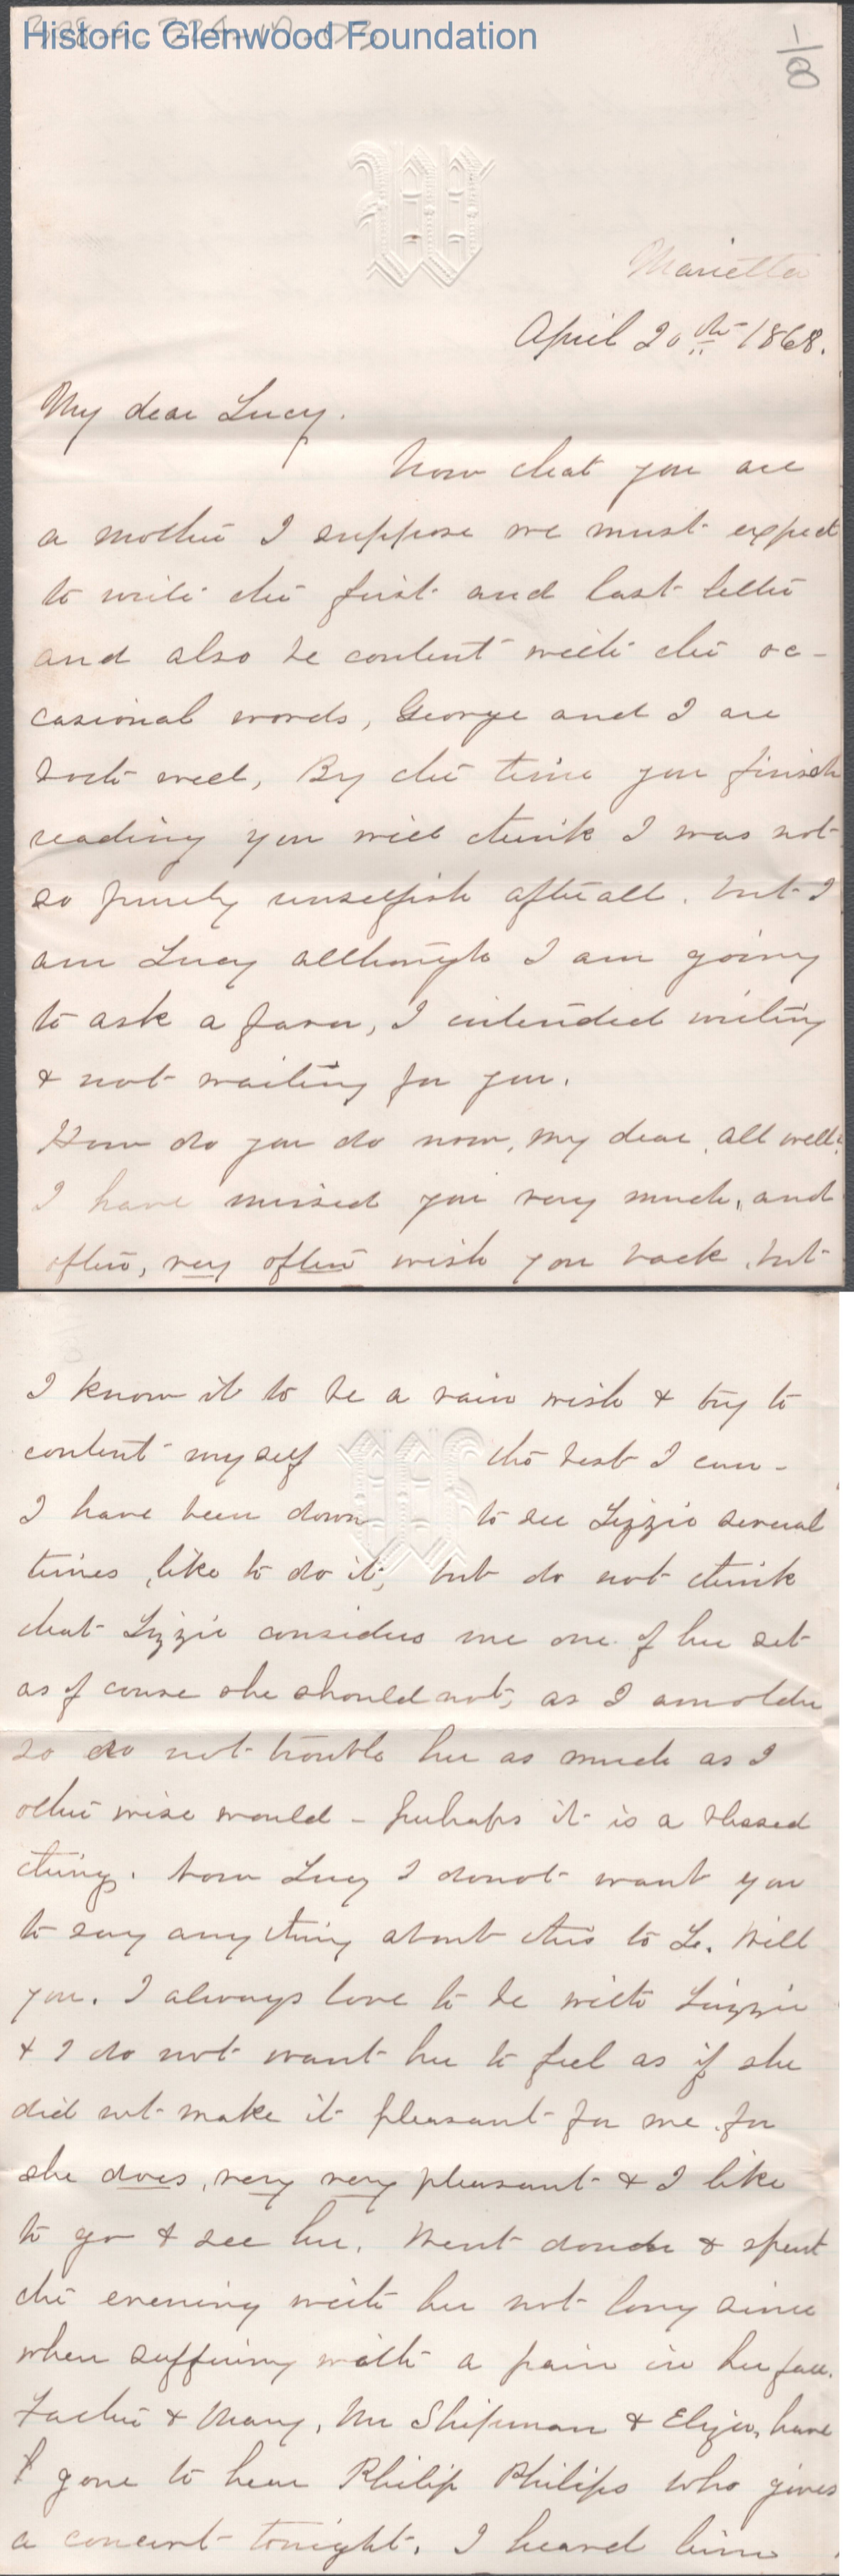 Historic Glenwood Foundation
1/8
W
Marietta
April 20th 1868.
My dear Lucy.
Now that you are
a mother I suppose we must expect
to write the first and last letter
and also be content with the oc-
casional words, George and I are
both well, By the time you finish
reading you will think I was not
so purely unselfish after all. but I
am Lucy although I am going
to ask a favor, I intended writing
& not waiting for you.
How do you do now, my dear, all well?
I have missed you very much, and
often, very often wish you back, but
I know it to be a vain wish & try to
content myself the best I can -
I have been down to see Lizzie several
times, like to do it, but do not think
that Lizzie considers me one of her set
as of course she should not, as I am older
so do not trouble her as much as I
other wise would - perhaps it is a blessed
thing. Now Lucy I do not want you
to say any thing about this to L. Will
you. I always love to be with Lizzie
& I do not want her to feel as if she
did not make it pleasant for me. for
she does, very very pleasant & I like
to go & see her. Went down & spent
the evening with her not long since
when suffering with a pain in her face.
Father & Mary, Mr Shipman & Eliza, have
gone to hear Philip Philips who gives
a concert tonight. I heard him